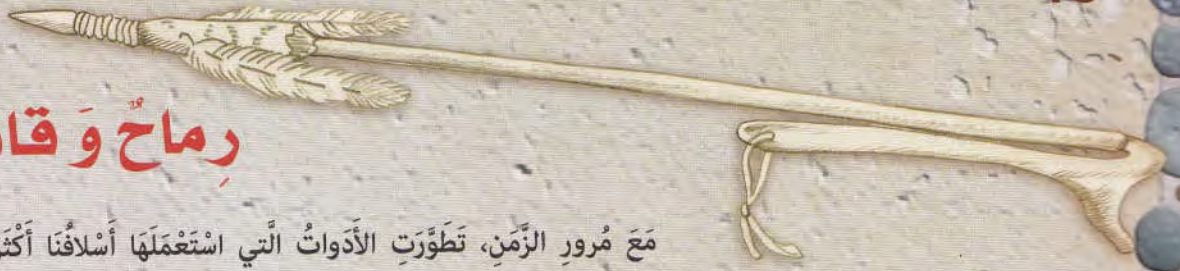 رِماحٌ وَ
مَعَ مُرورِ الزَّمَنِ، تَطَوَّرَتِ الأَدَواتُ الَّتي اسْتَعْمَلَهَا أَسْلافُنَا